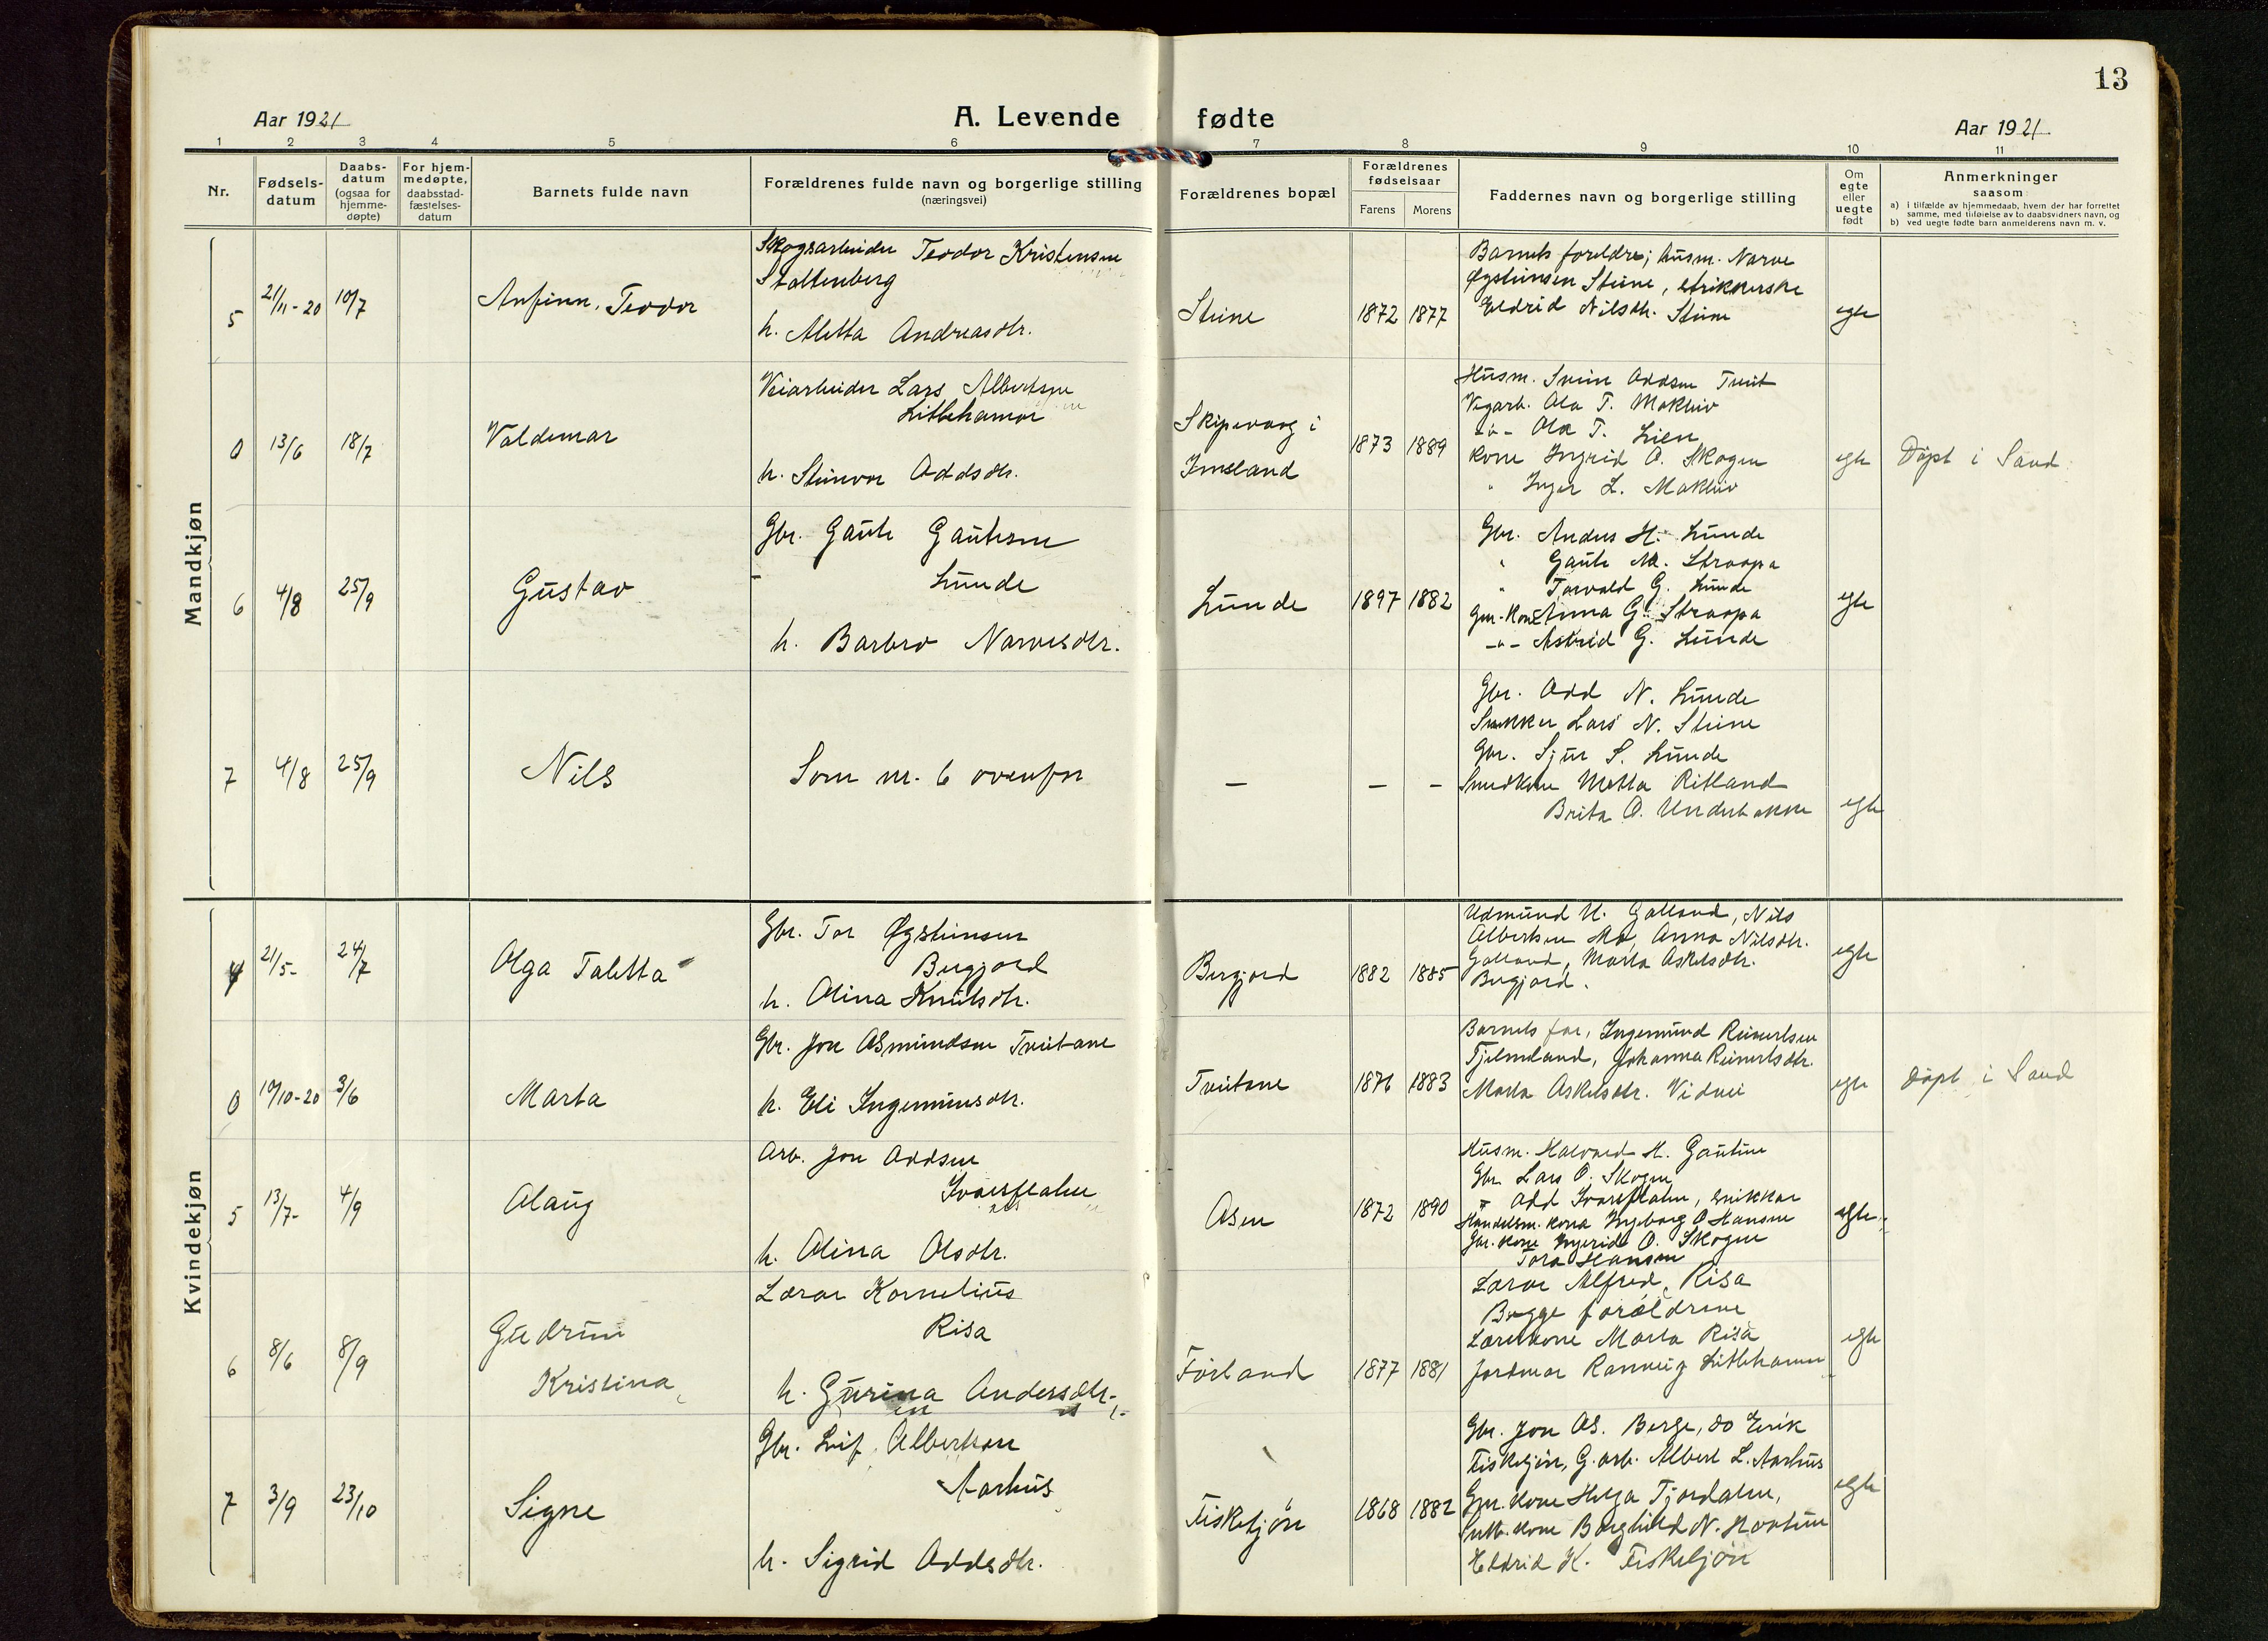 13
Aar 1921
A. Levende fødte
Aar 1921
1 2 3 4 5 6 7 8 9 10 11
Nr.
Fødsels-
datum
Daabs-
datum
(ogsaa for
hjemme-
døpte)
For hjem-
medøpte,
daabsstad-
fæstelses-
datum
Barnets fulde navn
Forældrenes fulde navn og borgerlige stilling
(næringsvei)
Forældrenes bopæl
Forældrenes
fødselsaar
Farens Morens
Faddernes navn og borgerlige stilling
Om
egte
eller
uegte
født
Anmerkninger
saasom
a) i tilfælde av hjemmedaab, hvem der har forrettet
samme, med tilføielse av to daabsvidners navn, og
b) ved uegte fødte barn anmelderens navn m. v.
Mandkjøn
5 21/11-20 10/7 Anfinn, Teodor
Skogsarbeider Teodor Kristensen
Stoltenberg
h. Aletta Andreasdtr.
Steine 1872 1877
Barnets foreldre; husm. Narve
Øysteinsen Steine, strikkerske
Eldrid Nilsdtr. Steine
egte
0 13/6 18/7 Valdemar
Veiarbeider Lars Albertsen
Litlehamar
h. Steinvor Oddsdtr.
Skipevaag i
Imsland
1873 1889
Husm. Svein Oddsen Tveit
Vegarb. Ola T. Mokleiv
-"- Ola T. Lien
Kone Ingrid O. Skogen
" Inger L. Mokleiv
egte
Døpt i Sand
6 4/8 25/9 Gustav
Gbr. Gaute Gautesen
Lunde
h. Barbro Narvesdtr.
Lunde 1897 1882
Gbr. Anders H. Lunde
" Gaute M. Straapa
" Torvald G. Lunde
Gbr.-Kone Anna G. Straapa
-"- Astrid G. Lunde
egte
7 4/8 25/9 Nils
Som nr. 6 ovenfor
- - -
Gbr. Odd N. Lunde
Snekker Lars N. Steine
Gbr. Sjur S. Lunde
Smedkone Metta Ritland
Brita O. Underbakke
egte
Kvindekjøn
4 21/5- 24/7 Olga Taletta
Gbr. Tor Øysteinsen
Bergjord
h. Olina Knutsdtr.
Bergjord 1882 1885
Udmund U. Galland, Nils
Albertsen Mo, Anna Nilsdtr.
Galland, Marta Askelsdtr.
Bergjord.
egte
0 10/10-20 3/6 Marta
Gbr. Jon Asmundsen Tveitane
h. Eli Ingemunsdtr.
Tveitane 1876 1883
Barnets far, Ingemund Reinertsen
Tjelmeland, Johanna Reinertsdtr.
Marta Askelsdtr. Vidvei
egte
Døpt i Sand
5 13/7- 4/9 Olaug
Arb. Jon Oddsen
Ivarsflaten
h. Olina Olsdtr.
Osen 1872 1890
Husm. Halvard H. Gautun
Gbr. Lars O. Skogen
" Odd Ivarsflaten, snikkar
Handelsm. kona Ingeborg O Hansen
Gbr. Kone Ingerid O. Skogen
Tora Hansen
egte
6 8/6 8/9 Gudrun
Kristina
Lærar Kornelius
Risa
h. Gurina Andersdtr.
Førland 1877 1881
Lærar Alfred Risa
Begge forældrene
Lærerkone Marta Risa
Jordmor Rannveig Litlehamar
egte
7 3/9 23/10 Signe
Gbr. Leif Albertsen
Aarhus
h. Sigrid Oddsdtr.
Fisketjøn 1868 1882
Gbr. Jon As. Berge, do Eirik
Fisketjøn, G. arb. Albert L. Aarhus
Gbr. kone Helga Tjordalen,
kone Borghild N.
Eldrid K. Fisketjøn
egte